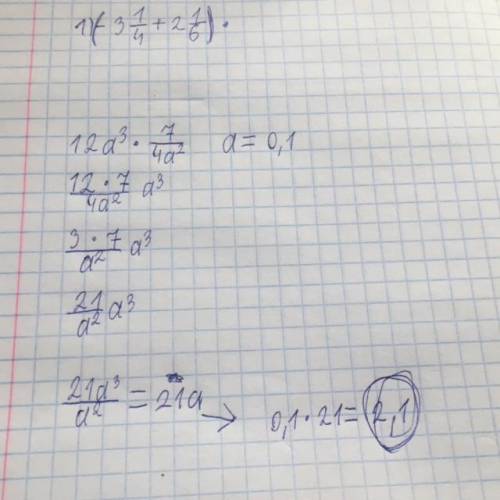 1)(-3 1/4 + 2 1/6) ·
12a³ · 7/4a² a = 0,1
12 · 7/4a² a³
3 · 7/a² a³
21/a² a³
21a³/a² = 21a → 0,1 · 21 = 2,1